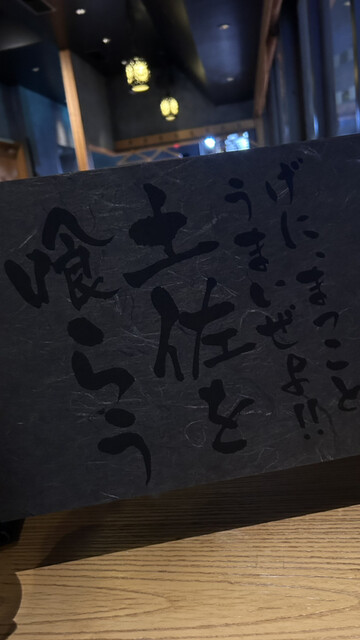 げに、まっこと
うまいぜよ!!
土佐を
喰らう